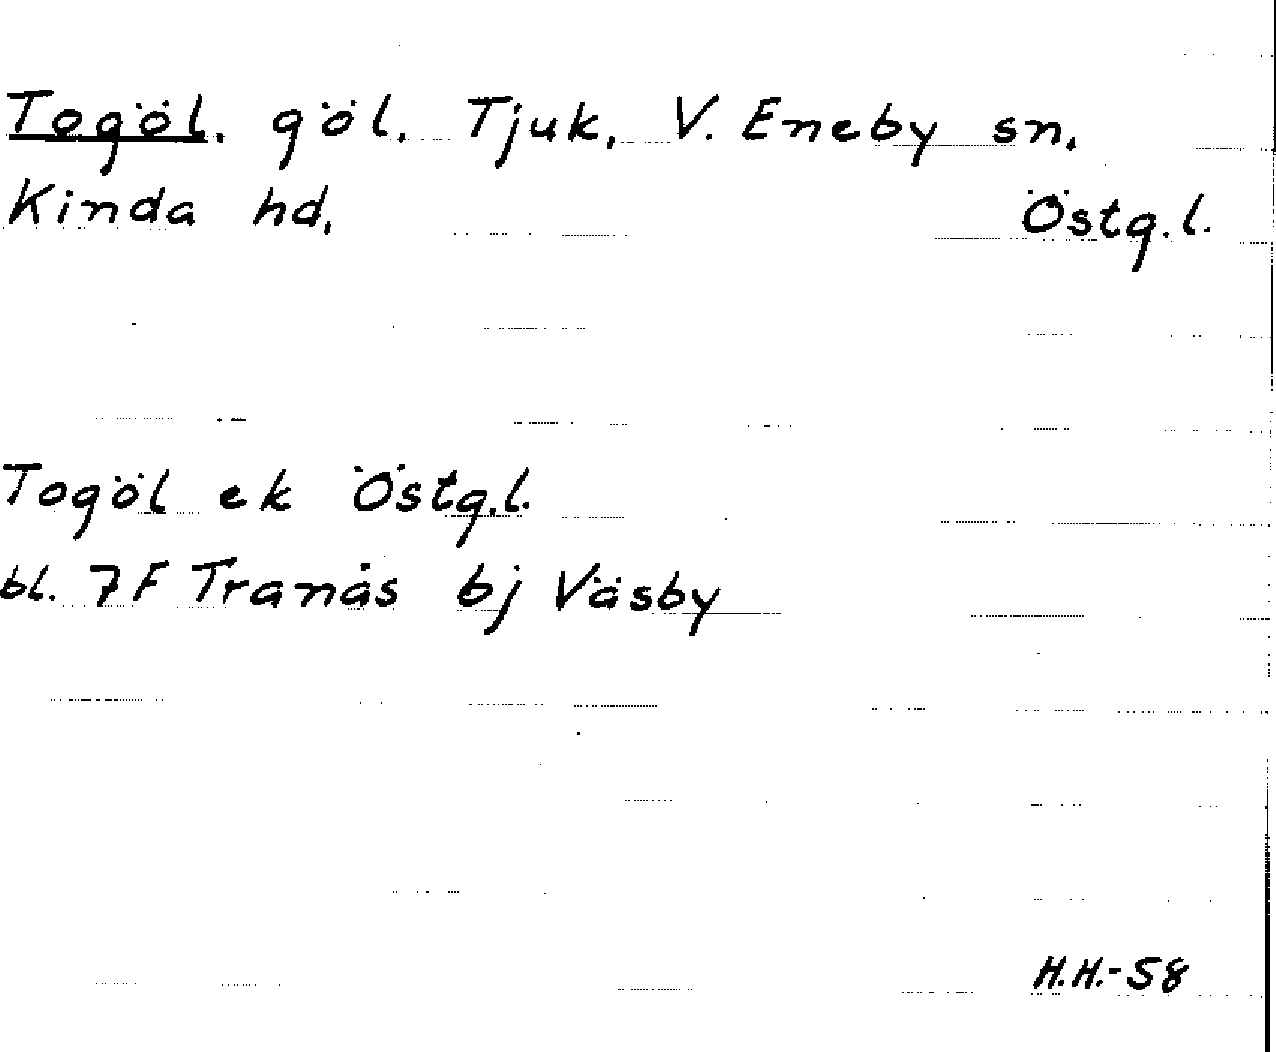 Togöl. göl. Tjuk, V. Eneby sn.
Kinda hd, Östg.l.
Togöl ek Östg.l.
bl. 7F Tranås bj Väsby
H.H.-58